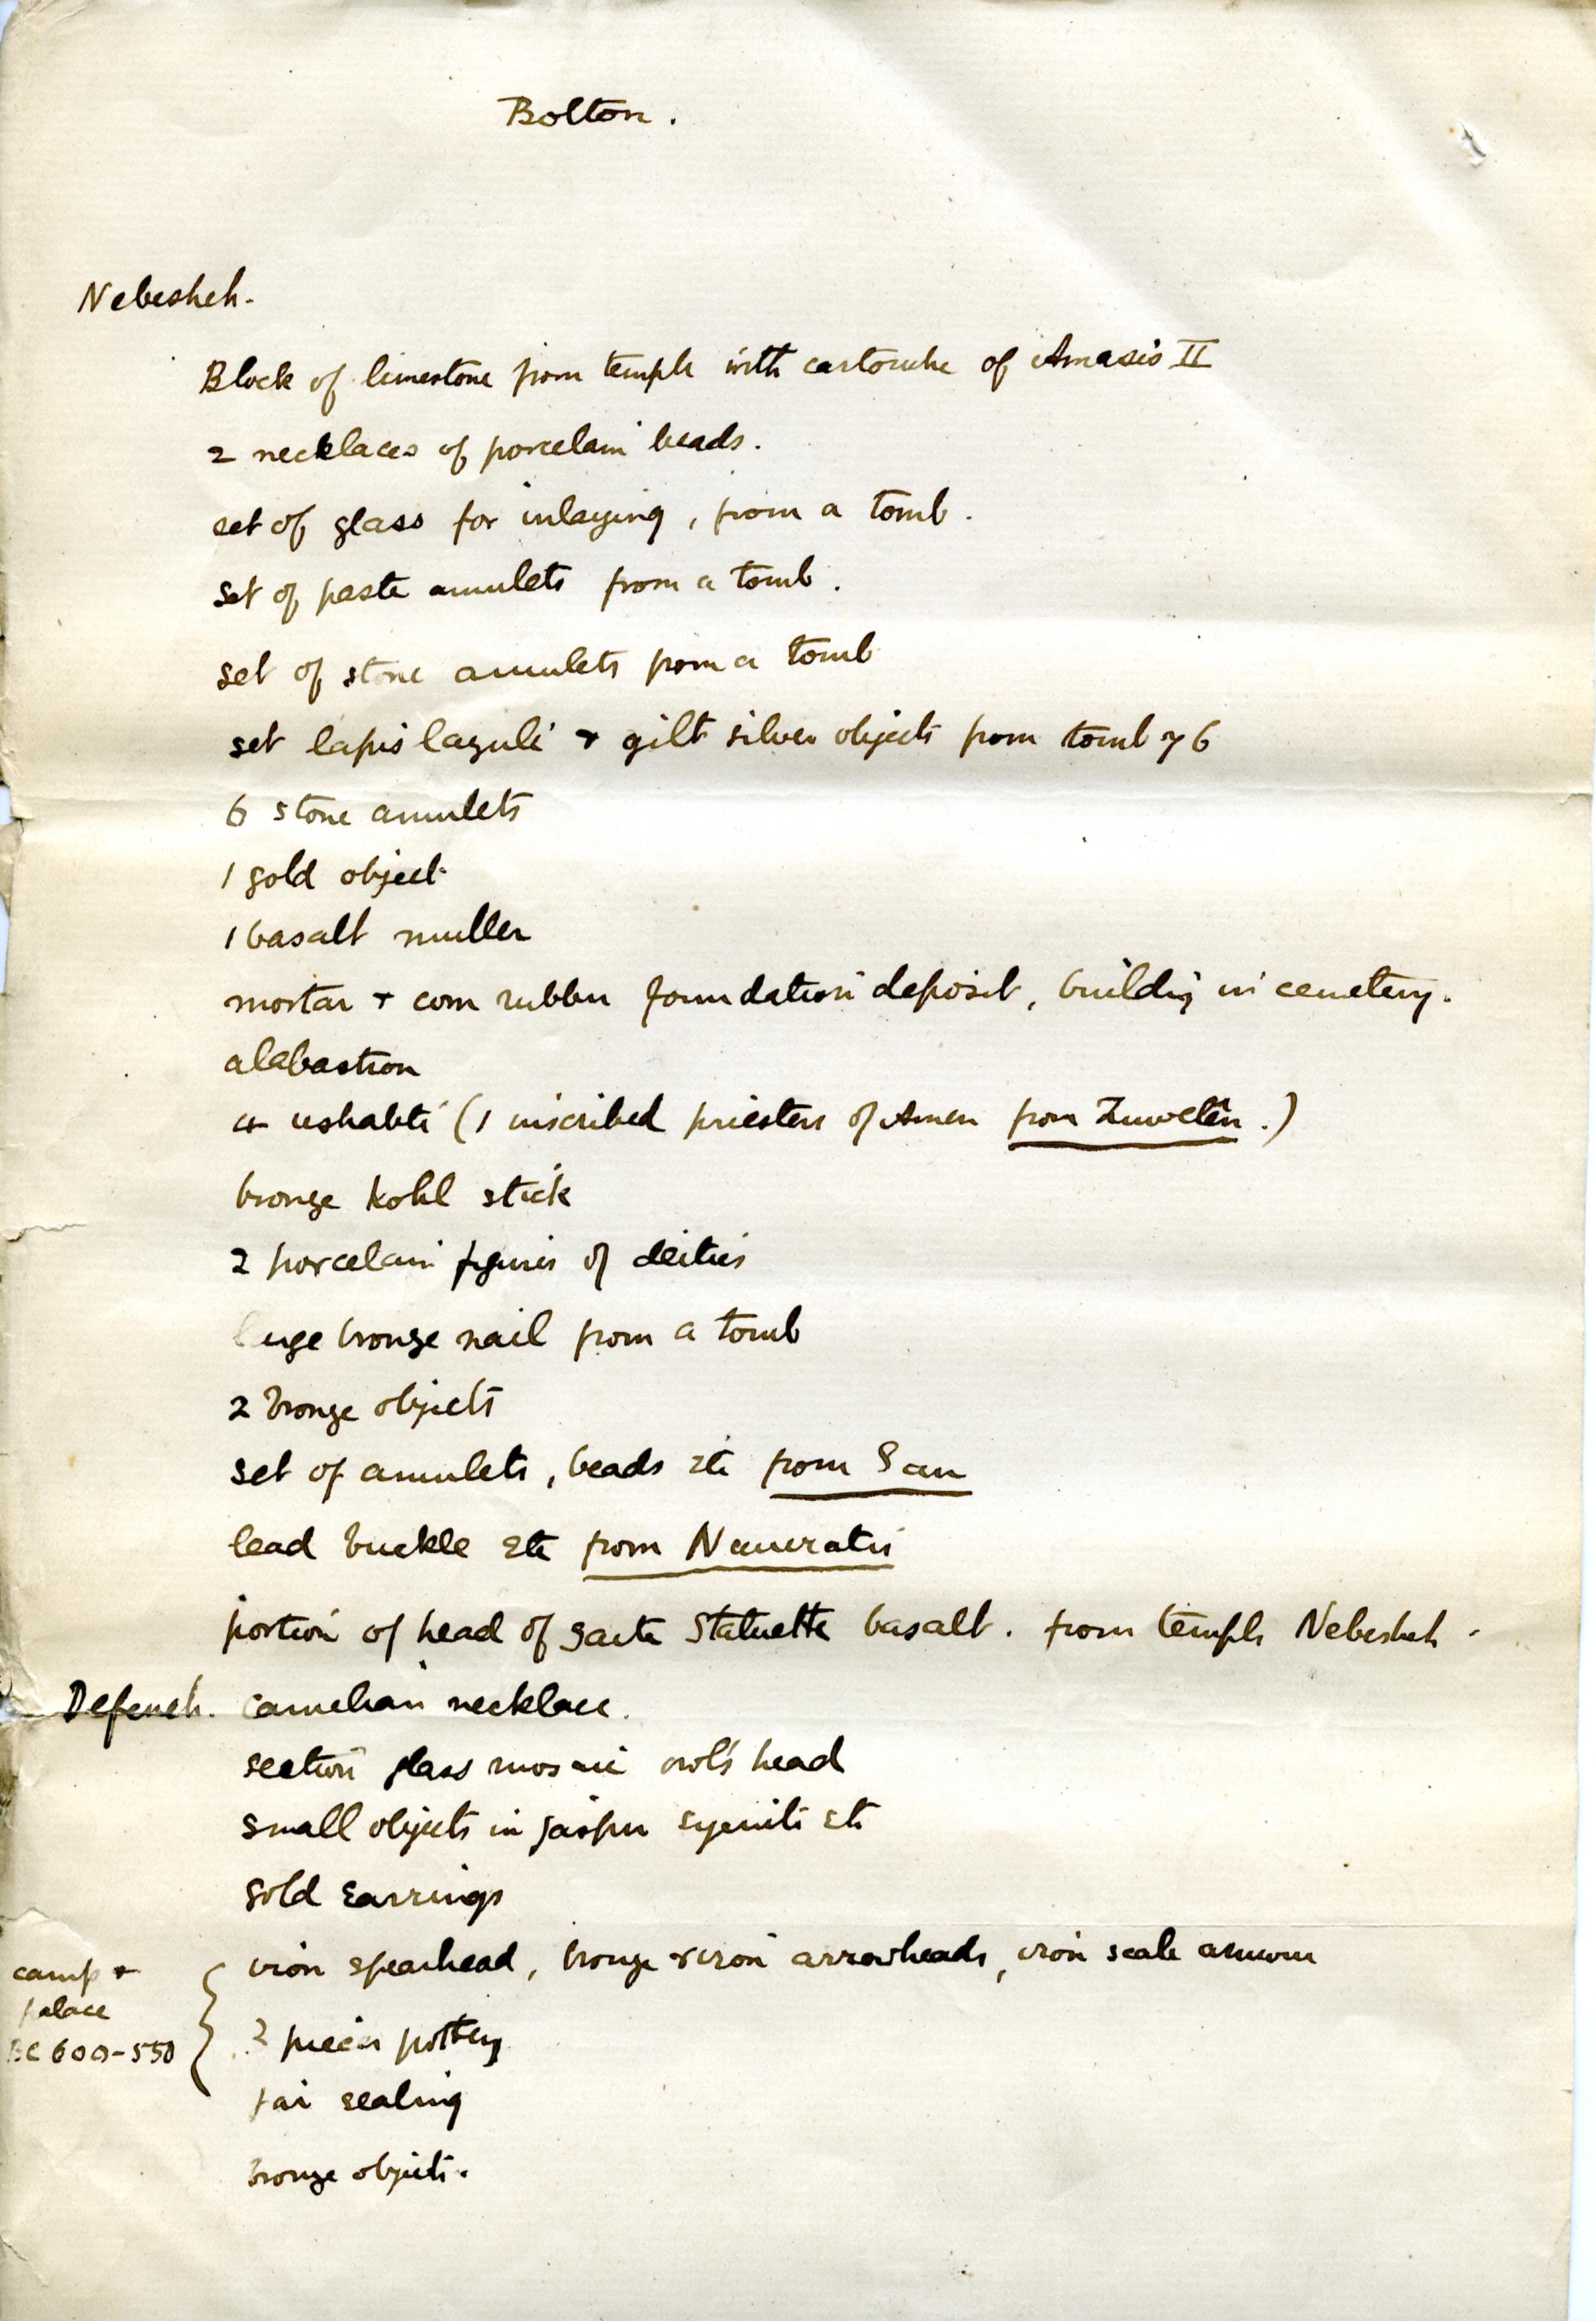 Bolton.
Nebesheh.
Block of limestone from temple with cartouche of Amasis II
2 necklaces of porcelain beads.
set of glass for inlaying, from a tomb.
set of paste amulets from a tomb.
set of stone amulets from a tomb
set lapis lazuli + gilt silver objects from tomb 76
6 stone amulets
1 gold object
1 basalt muller
mortar + corn rubber foundation deposit, building in cemetery.
alabastron
4 ushabti (1 inscribed priestess of Amen from Zuwelen.)
bronze kohl stick
2 porcelain figures of deities
large bronze nail from a tomb
2 bronze objects
set of amulets, beads etc from San
lead buckle etc from Naucratis
portion of head of saite statuette basalt. from temple Nebesheh.
Defeneh. carnelian necklace.
section glass mosaic owl's head
small objects in jasper syenite etc
gold earrings
camp + palace BC 600-550 { iron spearhead, bronze + iron arrowheads, iron scale armour
2 pieces pottery
jar sealing
bronze objects.